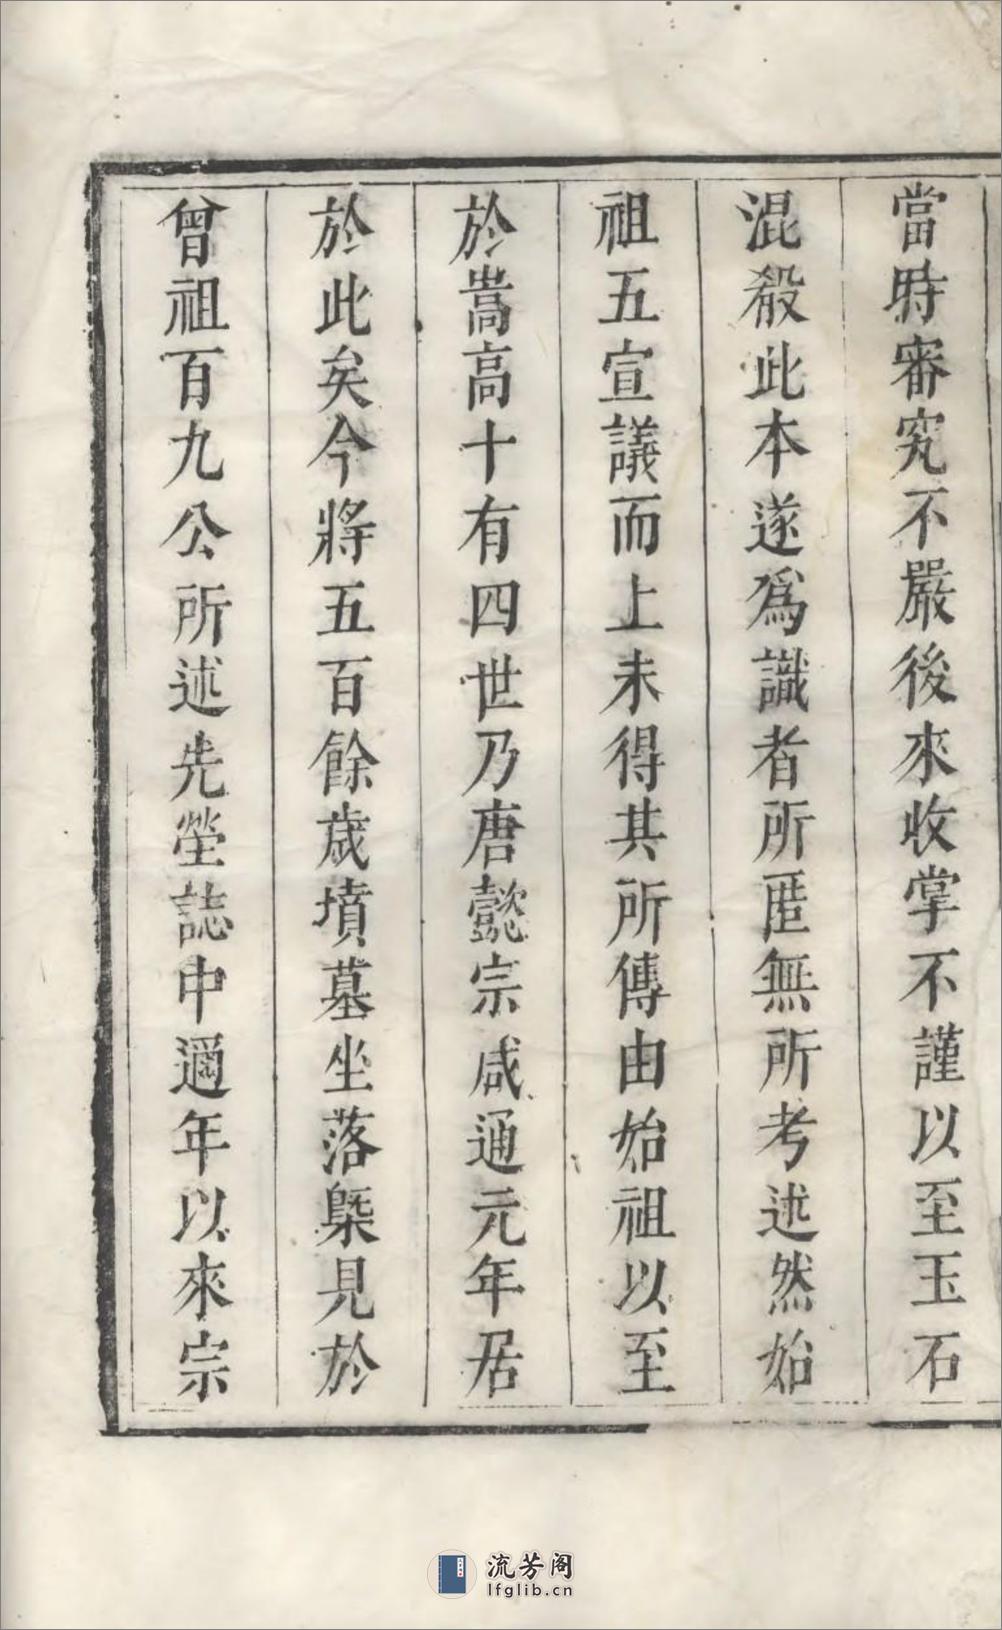 當時審究不嚴後來收掌不謹以至玉石
混殽此本遂爲識者所匿無所考述然始
祖五宣議而上未得其所傳由始祖以至
於嵩高十有四世乃唐懿宗咸通元年居
於此矣今將五百餘歲墳墓坐落槩見於
曾祖百九公所述先塋誌中邇年以來宗
流芳阁
lfglib.cn